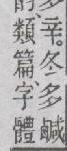 多辛。冬多鹹
類篇字體